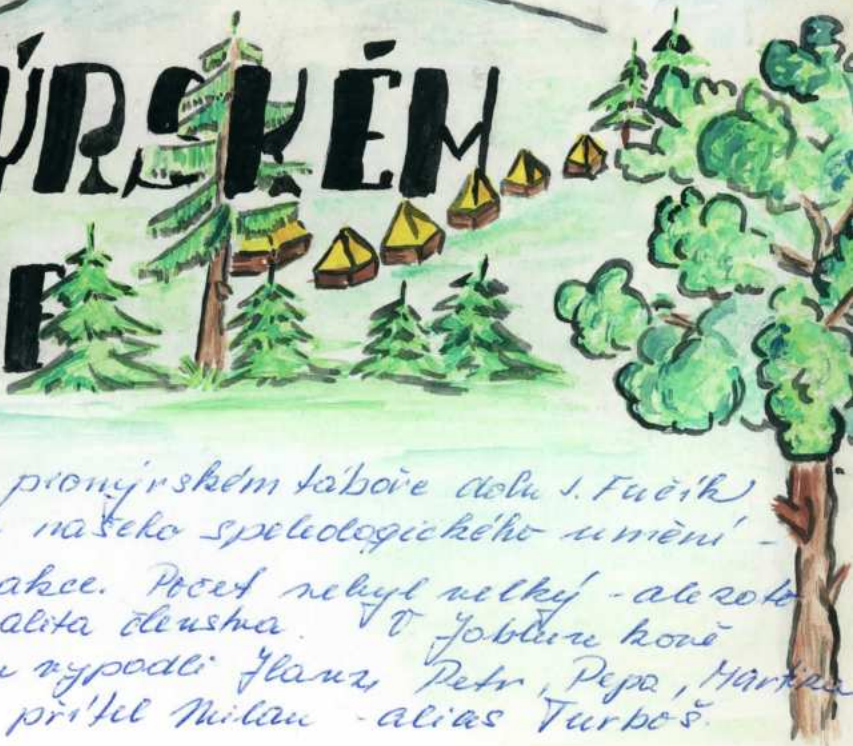 ÝRSKÉM
E
pionýrském táboře dolu J. Fučík
našeho speleologického umění -
akce. Počet nebyl velký - ale zato
alita členstva. V Jablunkově
vypadli Hanz, Petr, Pepa, Martina
přítel Milan - alias Turboš.